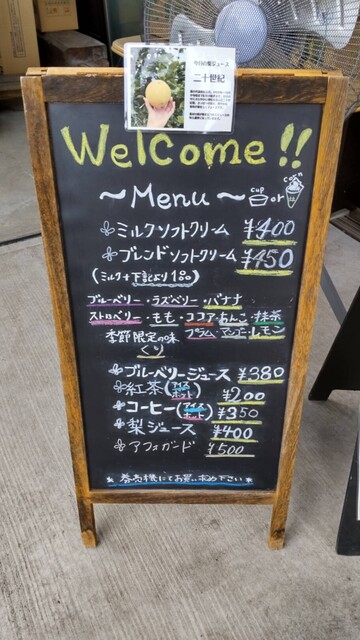 今日の梨ジュース
二十世紀
Welcome!!
~Menu~ cup or corn
ミルクソフトクリーム ¥400
ブレンドソフトクリーム ¥450
(ミルク+下記より1つ)
ブルーベリー・ラズベリー・バナナ
ストロベリー・もも・ココア・あんこ・抹茶
季節限定の味 プラム マンゴー レモン
くり
ブルーベリージュース ¥380
紅茶(アイス ホット) ¥200
コーヒー(アイス ホット) ¥350
梨ジュース ¥400
アフォガード ¥500
* 券売機にてお買い求め下さい *